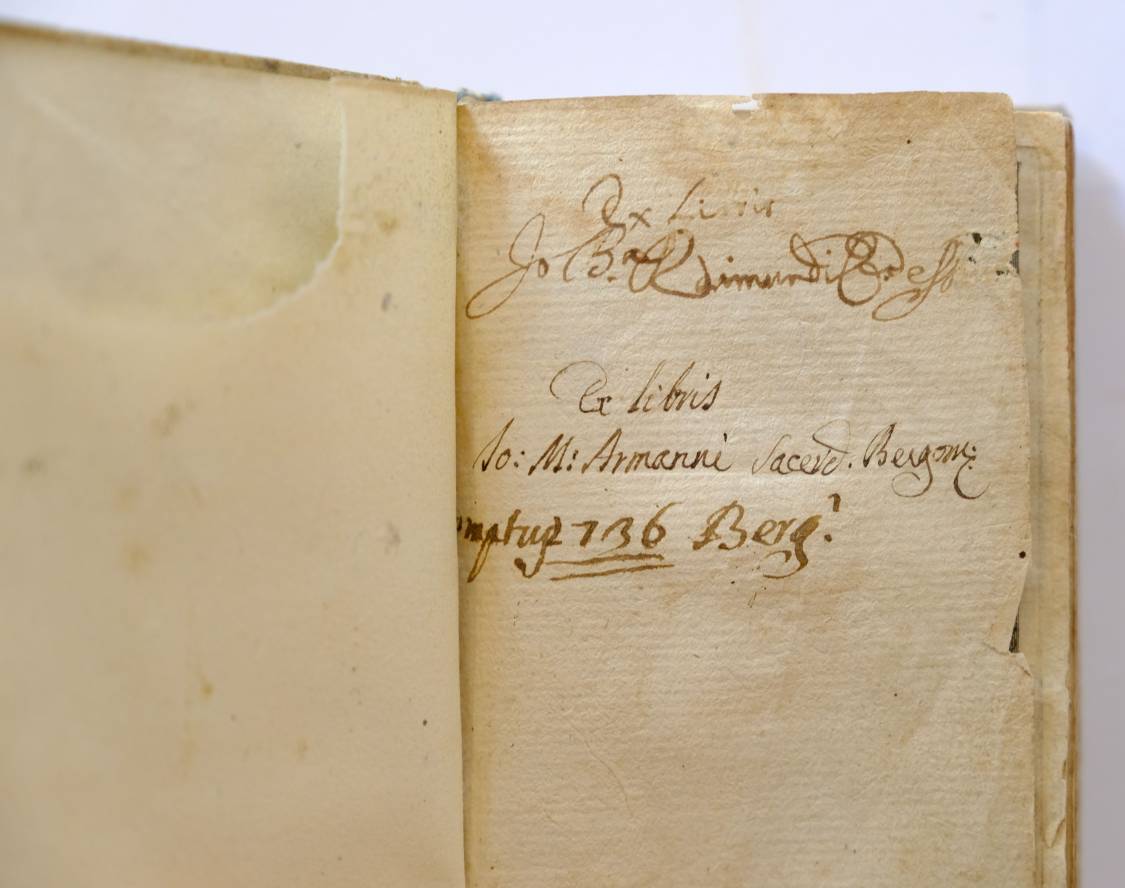 Ex Libris
Jo Bap Raimundi
Ex libris
Jo: M: Armanni Sacerd. Bergom:
mptus 1736 Berg.